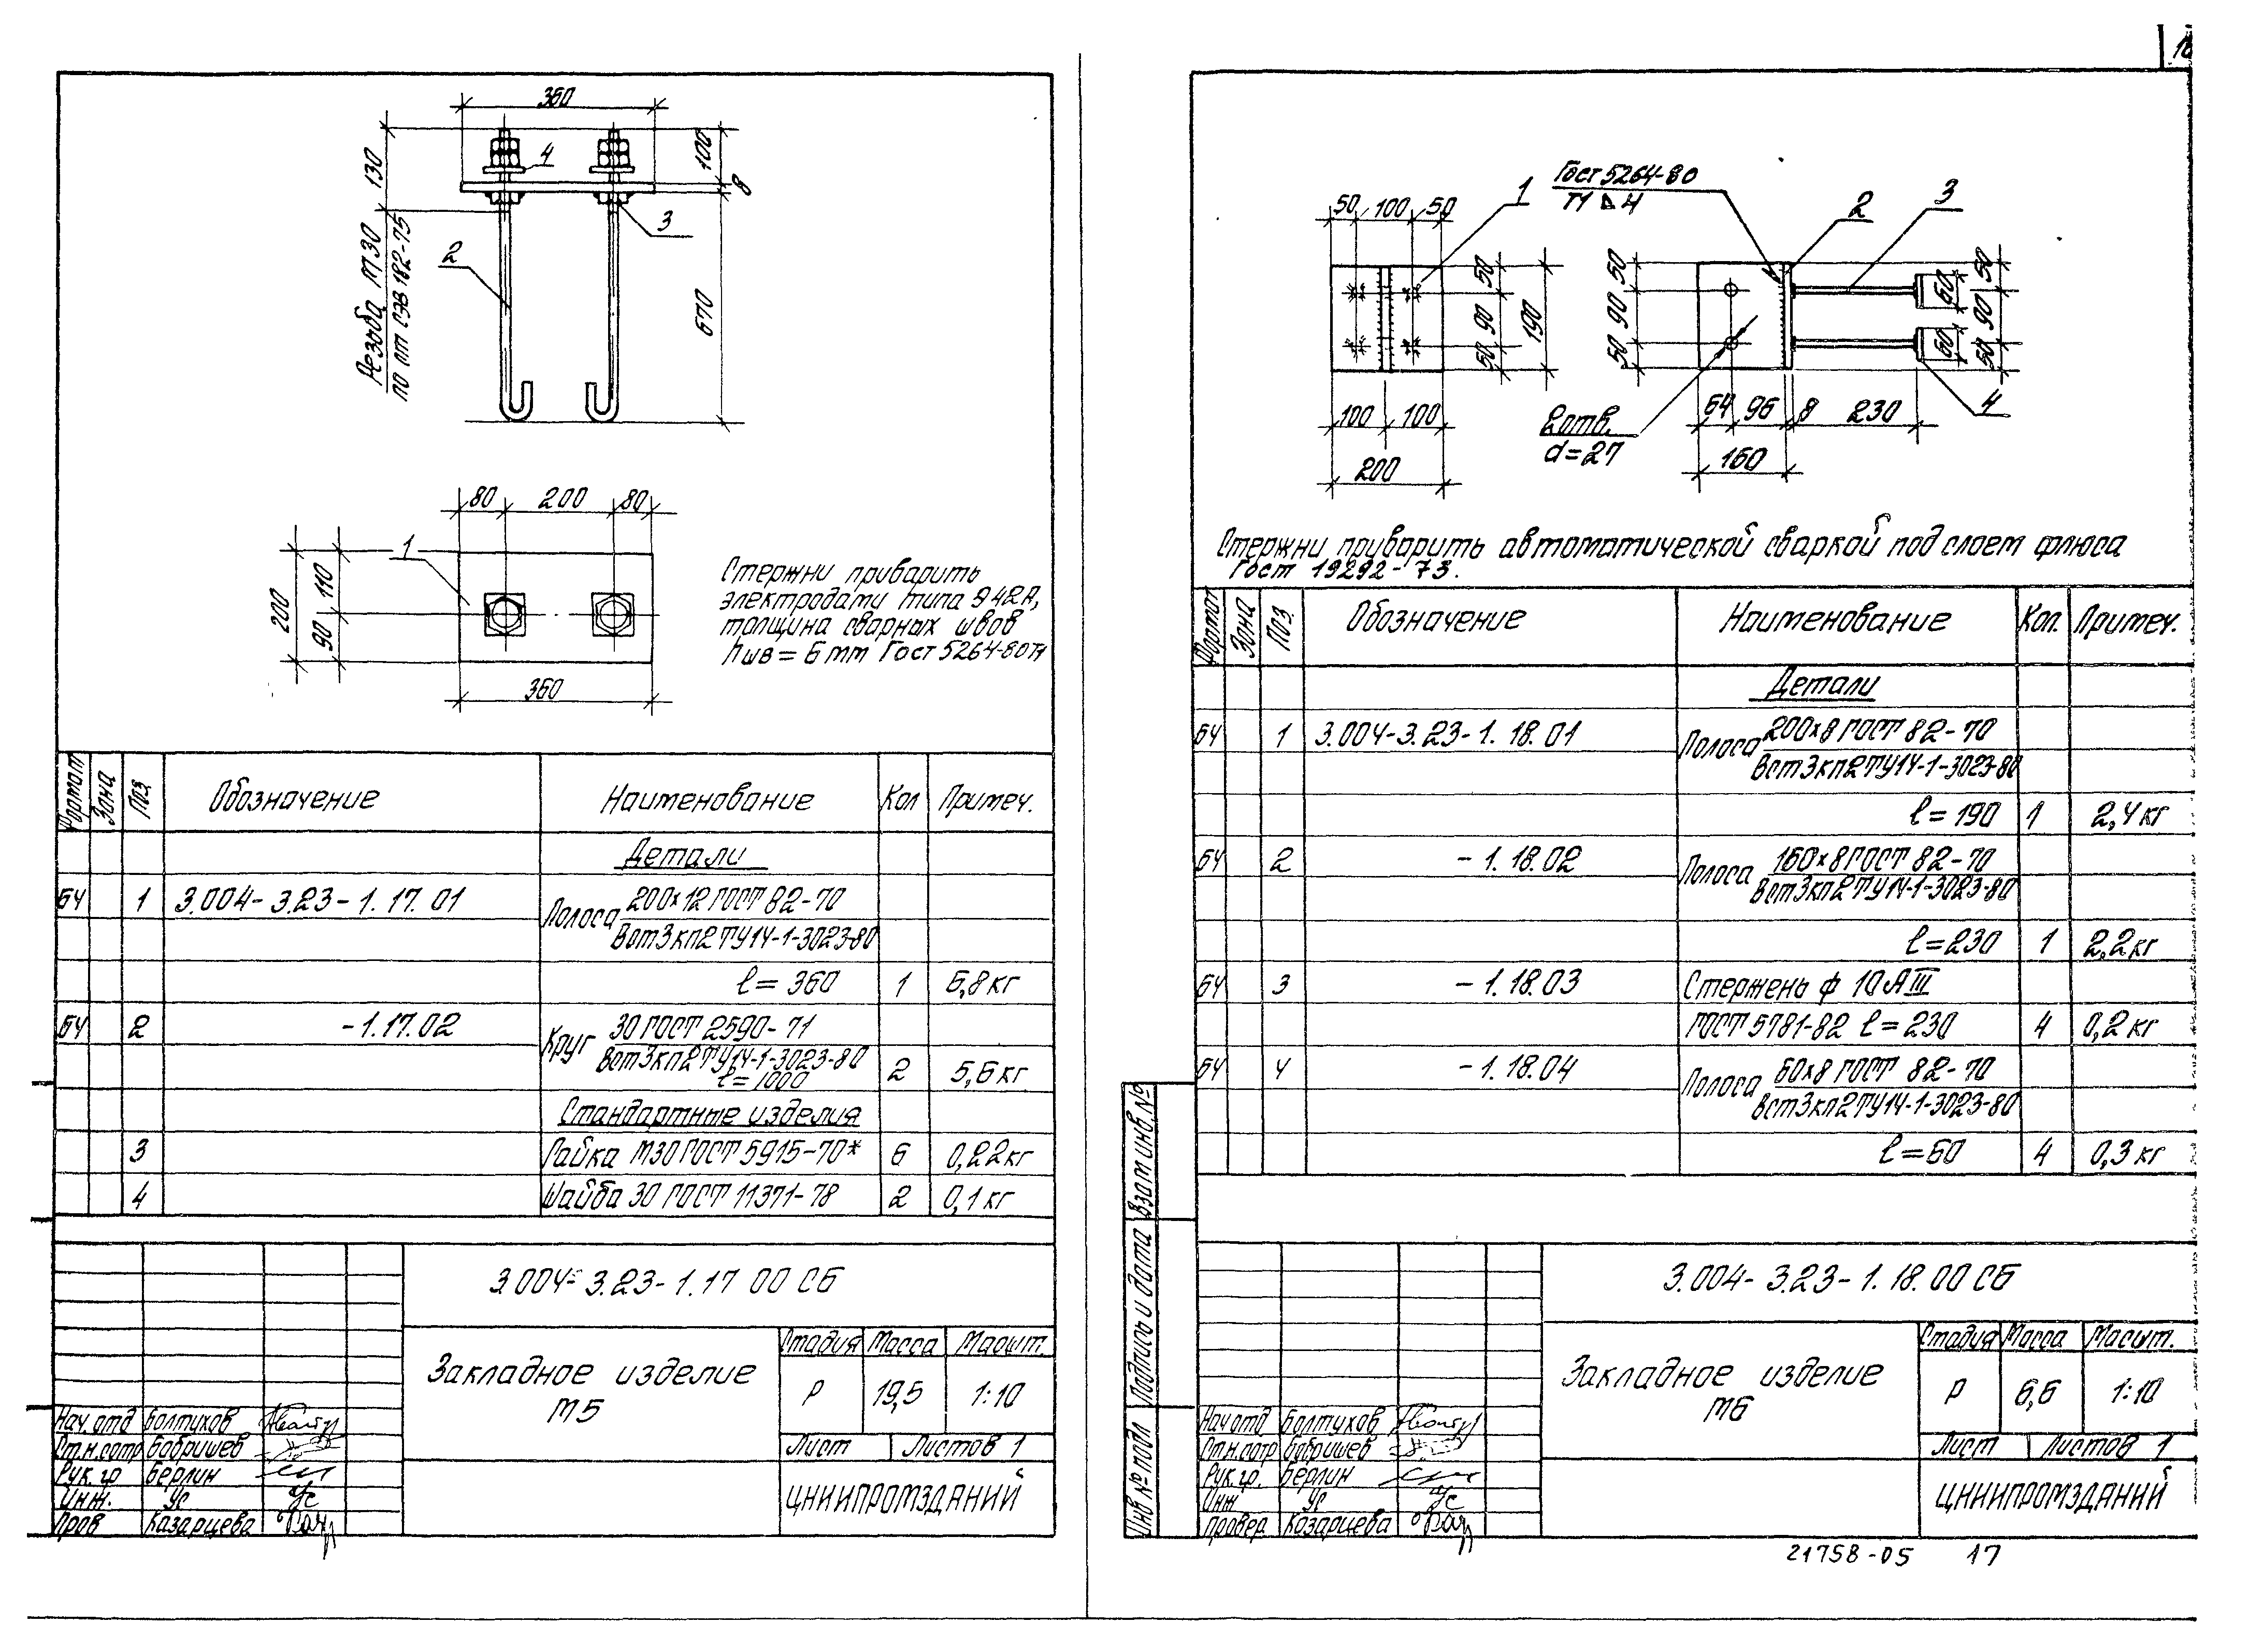 16
360
130
100
8
4
3
2
670
Резьба М30
по пт СЭВ 182-75
80 200 80
1
200
110
90
360
Стержни приварить
электродами типа Э42А,
толщина сварных швов
hшв = 6мм Гост 5264-80Т1
Формат Зона Поз. Обозначение Наименование Кол Примеч.
Детали
БЧ 1 3.004-3.23-1.17.01 Полоса 200х12 ГОСТ 82-70
Вст3кп2 ТУ14-1-3023-80
ℓ = 360 1 6,8 кг
БЧ 2 -1.17.02 Круг 30 ГОСТ 2590-71
Вст3кп2 ТУ14-1-3023-80
ℓ = 1000 2 5,6 кг
Стандартные изделия
3 Гайка М30 ГОСТ 5915-70* 6 0,22кг
4 Шайба 30 ГОСТ 11371-78 2 0,1 кг
3.004-3.23-1.17 00 СБ
Закладное изделие
М5
Стадия Масса Масшт.
Р 19,5 1:10
Лист Листов 1
ЦНИИПРОМЗДАНИЙ
Нач. отд Болтухов
Ст.н.сотр Бобришев
Рук. гр Берлин
Инж. Ус
Пров Казарцева
Гост 5264-80
Т1 ⊿ 4
50 100 50
1
2
3
50
90
50
190
100 100
200
50
90
50
60
60
50
90
50
2 отв.
d = 27
64 96 8 230
160
4
Стержни приварить автоматической сваркой под слоем флюса
Гост 19292-73.
Формат Зона Поз. Обозначение Наименование Кол. Примеч.
Детали
БЧ 1 3.004-3.23-1.18.01 Полоса 200х8 ГОСТ 82-70
Вст3кп2 ТУ14-1-3023-80
ℓ = 190 1 2,4 кг
БЧ 2 -1.18.02 Полоса 160х8 ГОСТ 82-70
Вст3кп2 ТУ14-1-3023-80
ℓ = 230 1 2,2 кг
БЧ 3 -1.18.03 Стержень ф 10 АIII
ГОСТ 5781-82 ℓ = 230 4 0,2 кг
БЧ 4 -1.18.04 Полоса 60х8 ГОСТ 82-70
Вст3кп2 ТУ14-1-3023-80
ℓ = 60 4 0,3 кг
Взам инв. №
Подпись и дата
Инв № подл
3.004-3.23-1.18.00 СБ
Закладное изделие
М6
Стадия Масса Масшт.
Р 6,6 1:10
Лист Листов 1
ЦНИИПРОМЗДАНИЙ
Нач отд Болтухов
Ст.н.сотр Бобришев
Рук. гр. Берлин
Инж Ус
Провер Казарцева
21758-05 17